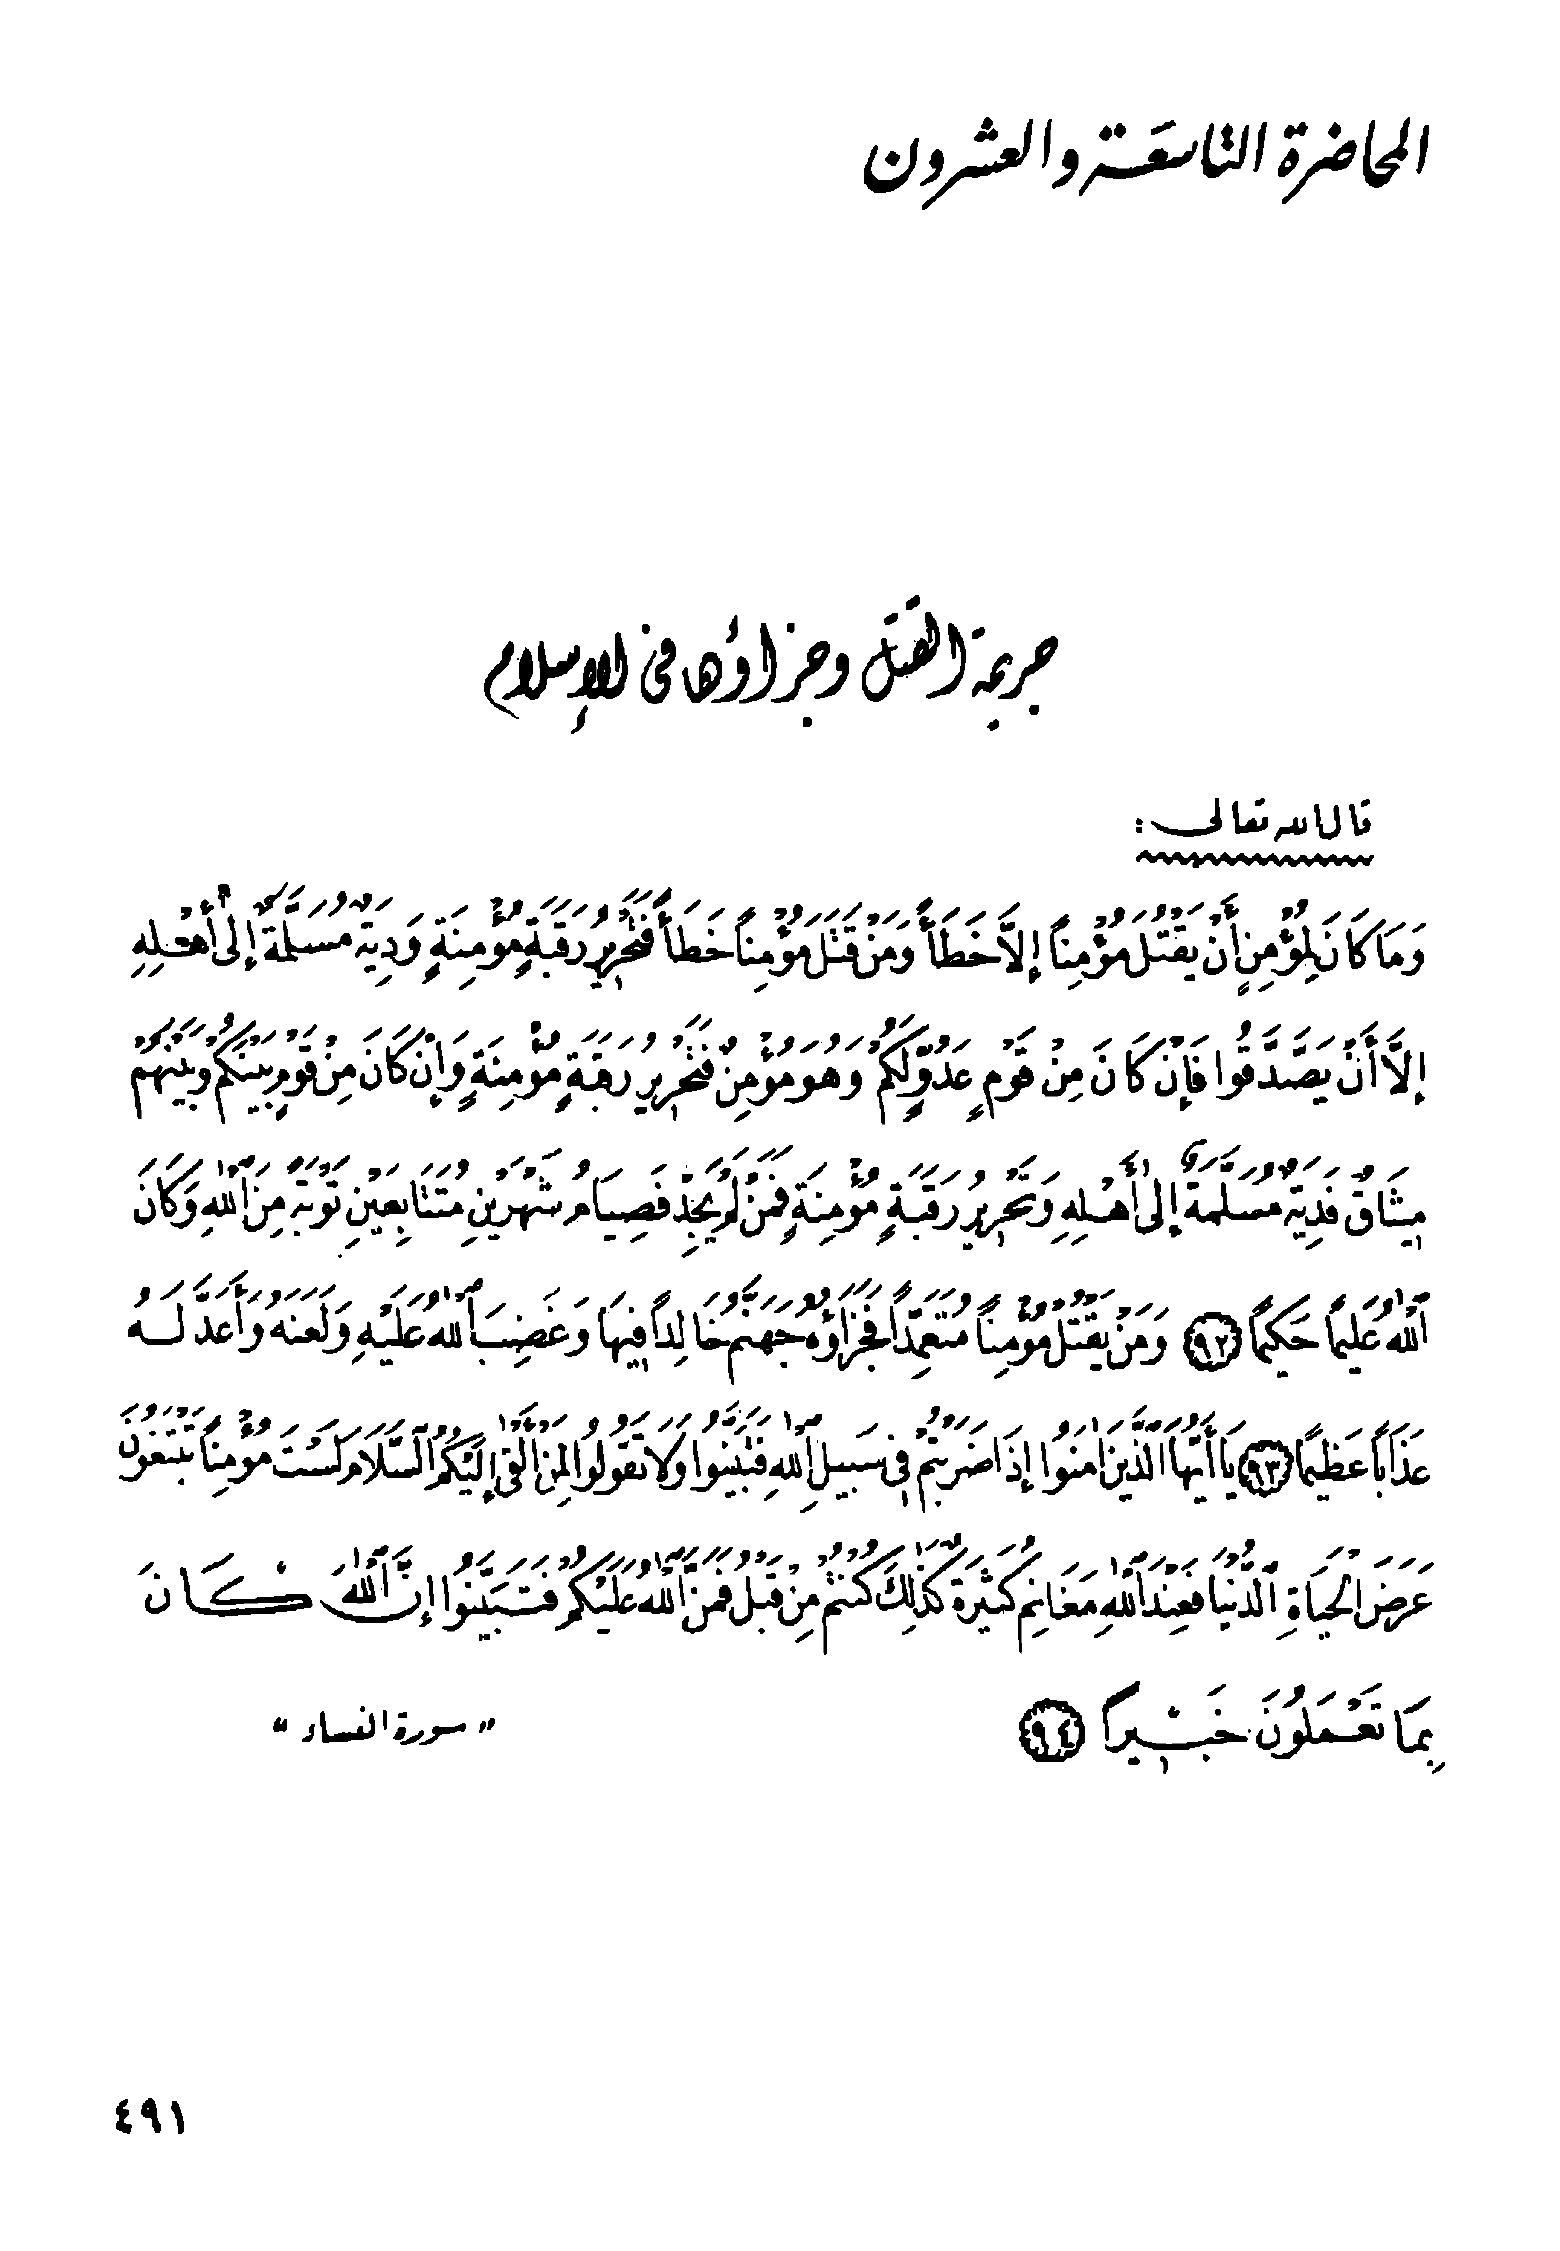 المحاضرة التاسعة والعشرون
جريمة القتل وجزاؤها في الإسلام
قال الله تعالى :
وَمَا كَانَ لِمُؤْمِنٍ أَنْ يَقْتُلَ مُؤْمِناً إِلَّا خَطَأً وَمَنْ قَتَلَ مُؤْمِناً خَطَأً فَتَحْرِيرُ رَقَبَةٍ مُؤْمِنَةٍ وَدِيَةٌ مُسَلَّمَةٌ إِلَىٰ أَهْلِهِ
إِلَّا أَنْ يَصَّدَّقُوا فَإِنْ كَانَ مِنْ قَوْمٍ عَدُوٍّ لَكُمْ وَهُوَ مُؤْمِنٌ فَتَحْرِيرُ رَقَبَةٍ مُؤْمِنَةٍ وَإِنْ كَانَ مِنْ قَوْمٍ بَيْنَكُمْ وَبَيْنَهُمْ
مِيثَاقٌ فَدِيَةٌ مُسَلَّمَةٌ إِلَىٰ أَهْلِهِ وَتَحْرِيرُ رَقَبَةٍ مُؤْمِنَةٍ فَمَنْ لَمْ يَجِدْ فَصِيَامُ شَهْرَيْنِ مُتَتَابِعَيْنِ تَوْبَةً مِنَ ٱللَّهِ وَكَانَ
ٱللَّهُ عَلِيماً حَكِيماً ﴿٩٢﴾ وَمَنْ يَقْتُلْ مُؤْمِناً مُتَعَمِّداً فَجَزَاؤُهُ جَهَنَّمُ خَالِداً فِيهَا وَغَضِبَ ٱللَّهُ عَلَيْهِ وَلَعَنَهُ وَأَعَدَّ لَهُ
عَذَاباً عَظِيماً ﴿٩٣﴾ يَا أَيُّهَا ٱلَّذِينَ اٰمَنُوا إِذَا ضَرَبْتُمْ فِي سَبِيلِ ٱللَّهِ فَتَبَيَّنُوا وَلَا تَقُولُوا لِمَنْ أَلْقَىٰ إِلَيْكُمُ ٱلسَّلَامَ لَسْتَ مُؤْمِناً تَبْتَغُونَ
عَرَضَ الْحَيَاةِ ٱلدُّنْيَا فَعِنْدَ ٱللَّهِ مَغَانِمُ كَثِيرَةٌ كَذٰلِكَ كُنْتُمْ مِنْ قَبْلُ فَمَنَّ ٱللَّهُ عَلَيْكُمْ فَتَبَيَّنُوا إِنَّ ٱللَّهَ كَانَ
بِمَا تَعْمَلُونَ خَبِيراً ﴿٩٤﴾ « سورة النساء »
٤٩١